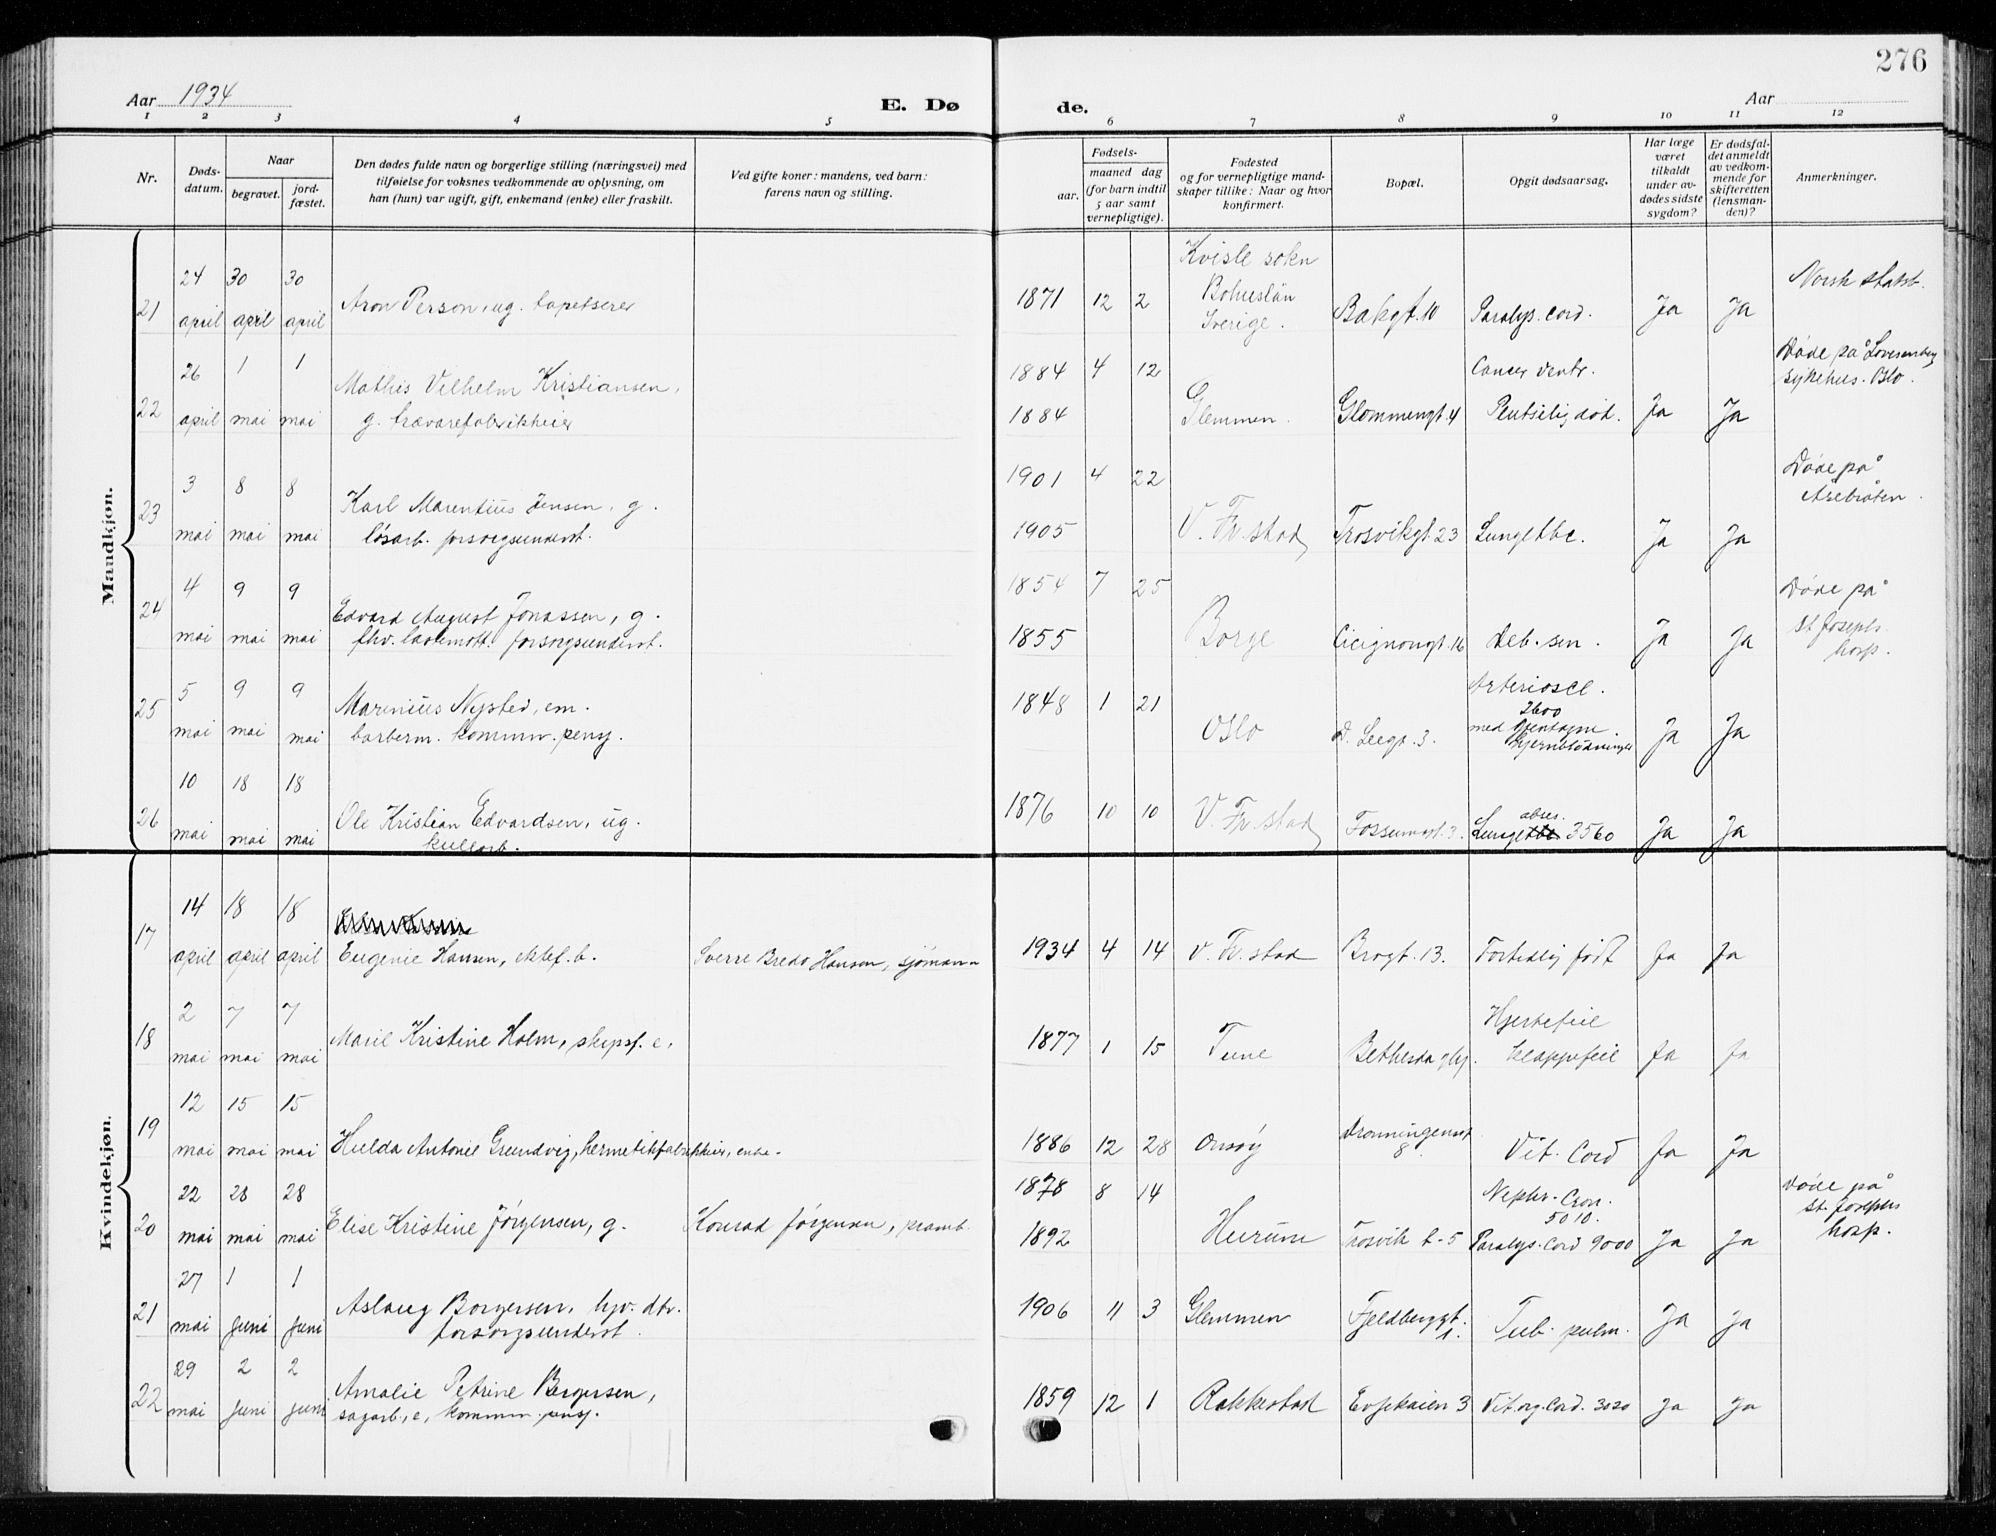 276
Aar 1934
E. Dø
de.
Aar
1 2 3 4 5 6 7 8 9 10 11 12
Nr.
Døds-
datum.
Naar
begravet.
jord-
fæstet.
Den dødes fulde navn og borgerlige stilling (næringsvei) med
tilføielse for voksnes vedkommende av oplysning, om
han (hun) var ugift, gift, enkemand (enke) eller fraskilt.
Ved gifte koner: mandens, ved barn:
farens navn og stilling.
Fødsels-
aar.
maaned dag
(for barn indtil
5 aar samt
vernepligtige).
Fødested
og for vernepligtige mand-
skaper tillike: Naar og hvor
konfirmert.
Bopæl.
Opgit dødsaarsag.
Har læge
været
tilkaldt
under av-
dødes sidste
sygdom?
Er dødsfal-
det anmeldt
av vedkom-
mende for
skifteretten
(lensman-
den)?
Anmerkninger.
Mandkjøn.
Kvisle sokn
24 30 30 Bohuslän Norsk statsb.
21 april april april Aron Person, ug. tapetserer 1871 12 2 Sverige. Bakgt. 10 Paralys. cord. Ja Ja
26 1 1 Mathis Vilhelm Kristiansen, 1884 4 12 Cancer ventr. Døde på Lovisenberg
sykehus. Oslo.
22 april mai mai g. trævarefabrikkeier 1884 Glemmen. Glommengt. 4 Pludselig død. Ja Ja
3 8 8 Karl Marentius Jensen, g. 1901 4 22 Døde på
23 mai mai mai løsarb. forsorgsunderst. 1905 V. Fr.stad Trosvikgt. 23 Lungetbc. Ja Ja
4 9 9 Edvard August Jonassen, g. 1854 7 25 Døde på
24 mai mai mai fhv. forsorgsunderst. 1855 Borge Cicignongt. 16 Deb. sen. Ja Ja St. Josephs
hosp.
5 9 9 Marinius Nysted, em. 1848 1 21 Arterioscl.
2600
25 mai mai mai barberm. kommun. pensj. Oslo d. Leegt. 3. med gjentagne Ja Ja
hjerneblødninger
10 18 18 Ole Kristian Edvardsen, ug. 1876 10 10 V. Fr.stad Fossumgt. 3. absc.
26 mai mai mai kullarb. Lungetbc 3560 Ja Ja
Kvindekjøn.
14 18 18
17 april april april Eugenie Hansen, ektef. b. Sverre Bredo Hansen, sjømann 1934 4 14 V. Fr.stad Brogt. 13. Fortidlig født Ja Ja
2 7 7 Hjertefeil
18 mai mai mai Marie Kristine Holm, skipsf. e. 1877 1 15 Tune Bethesda klappefeil Ja Ja
12 15 15 Dronningensgt
19 mai mai mai Hulda Antonie Grundvig, hermetikfabrikkeier, enke. 1886 12 28 Onsøy 8. Vit. Cord Ja Ja
22 28 28 1878 8 14 Nephr. Cron. Døde på
5010. St. Josephs
20 mai mai mai Elise Kristine Jørgensen, g. Konrad Jørgensen, pramb. 1892 Hurum Trosvik t. 5 Paralys. Cord 9000 Ja Ja hosp.
27 1 1 Aslaug Borgersen, hjv. dtr. 1906 11 3 Glemmen Fjeldberggt.
21 mai juni juni forsorgsunderst. 1. Tub. pulm. Ja Ja
29 2 2 Amalie Petrine Borgersen, 1859 12 1 Rakkestad Evjekaien 3 Vit. org. Cord. 3020 Ja Ja
22 mai juni juni sagarb, e, kommun. pensj.